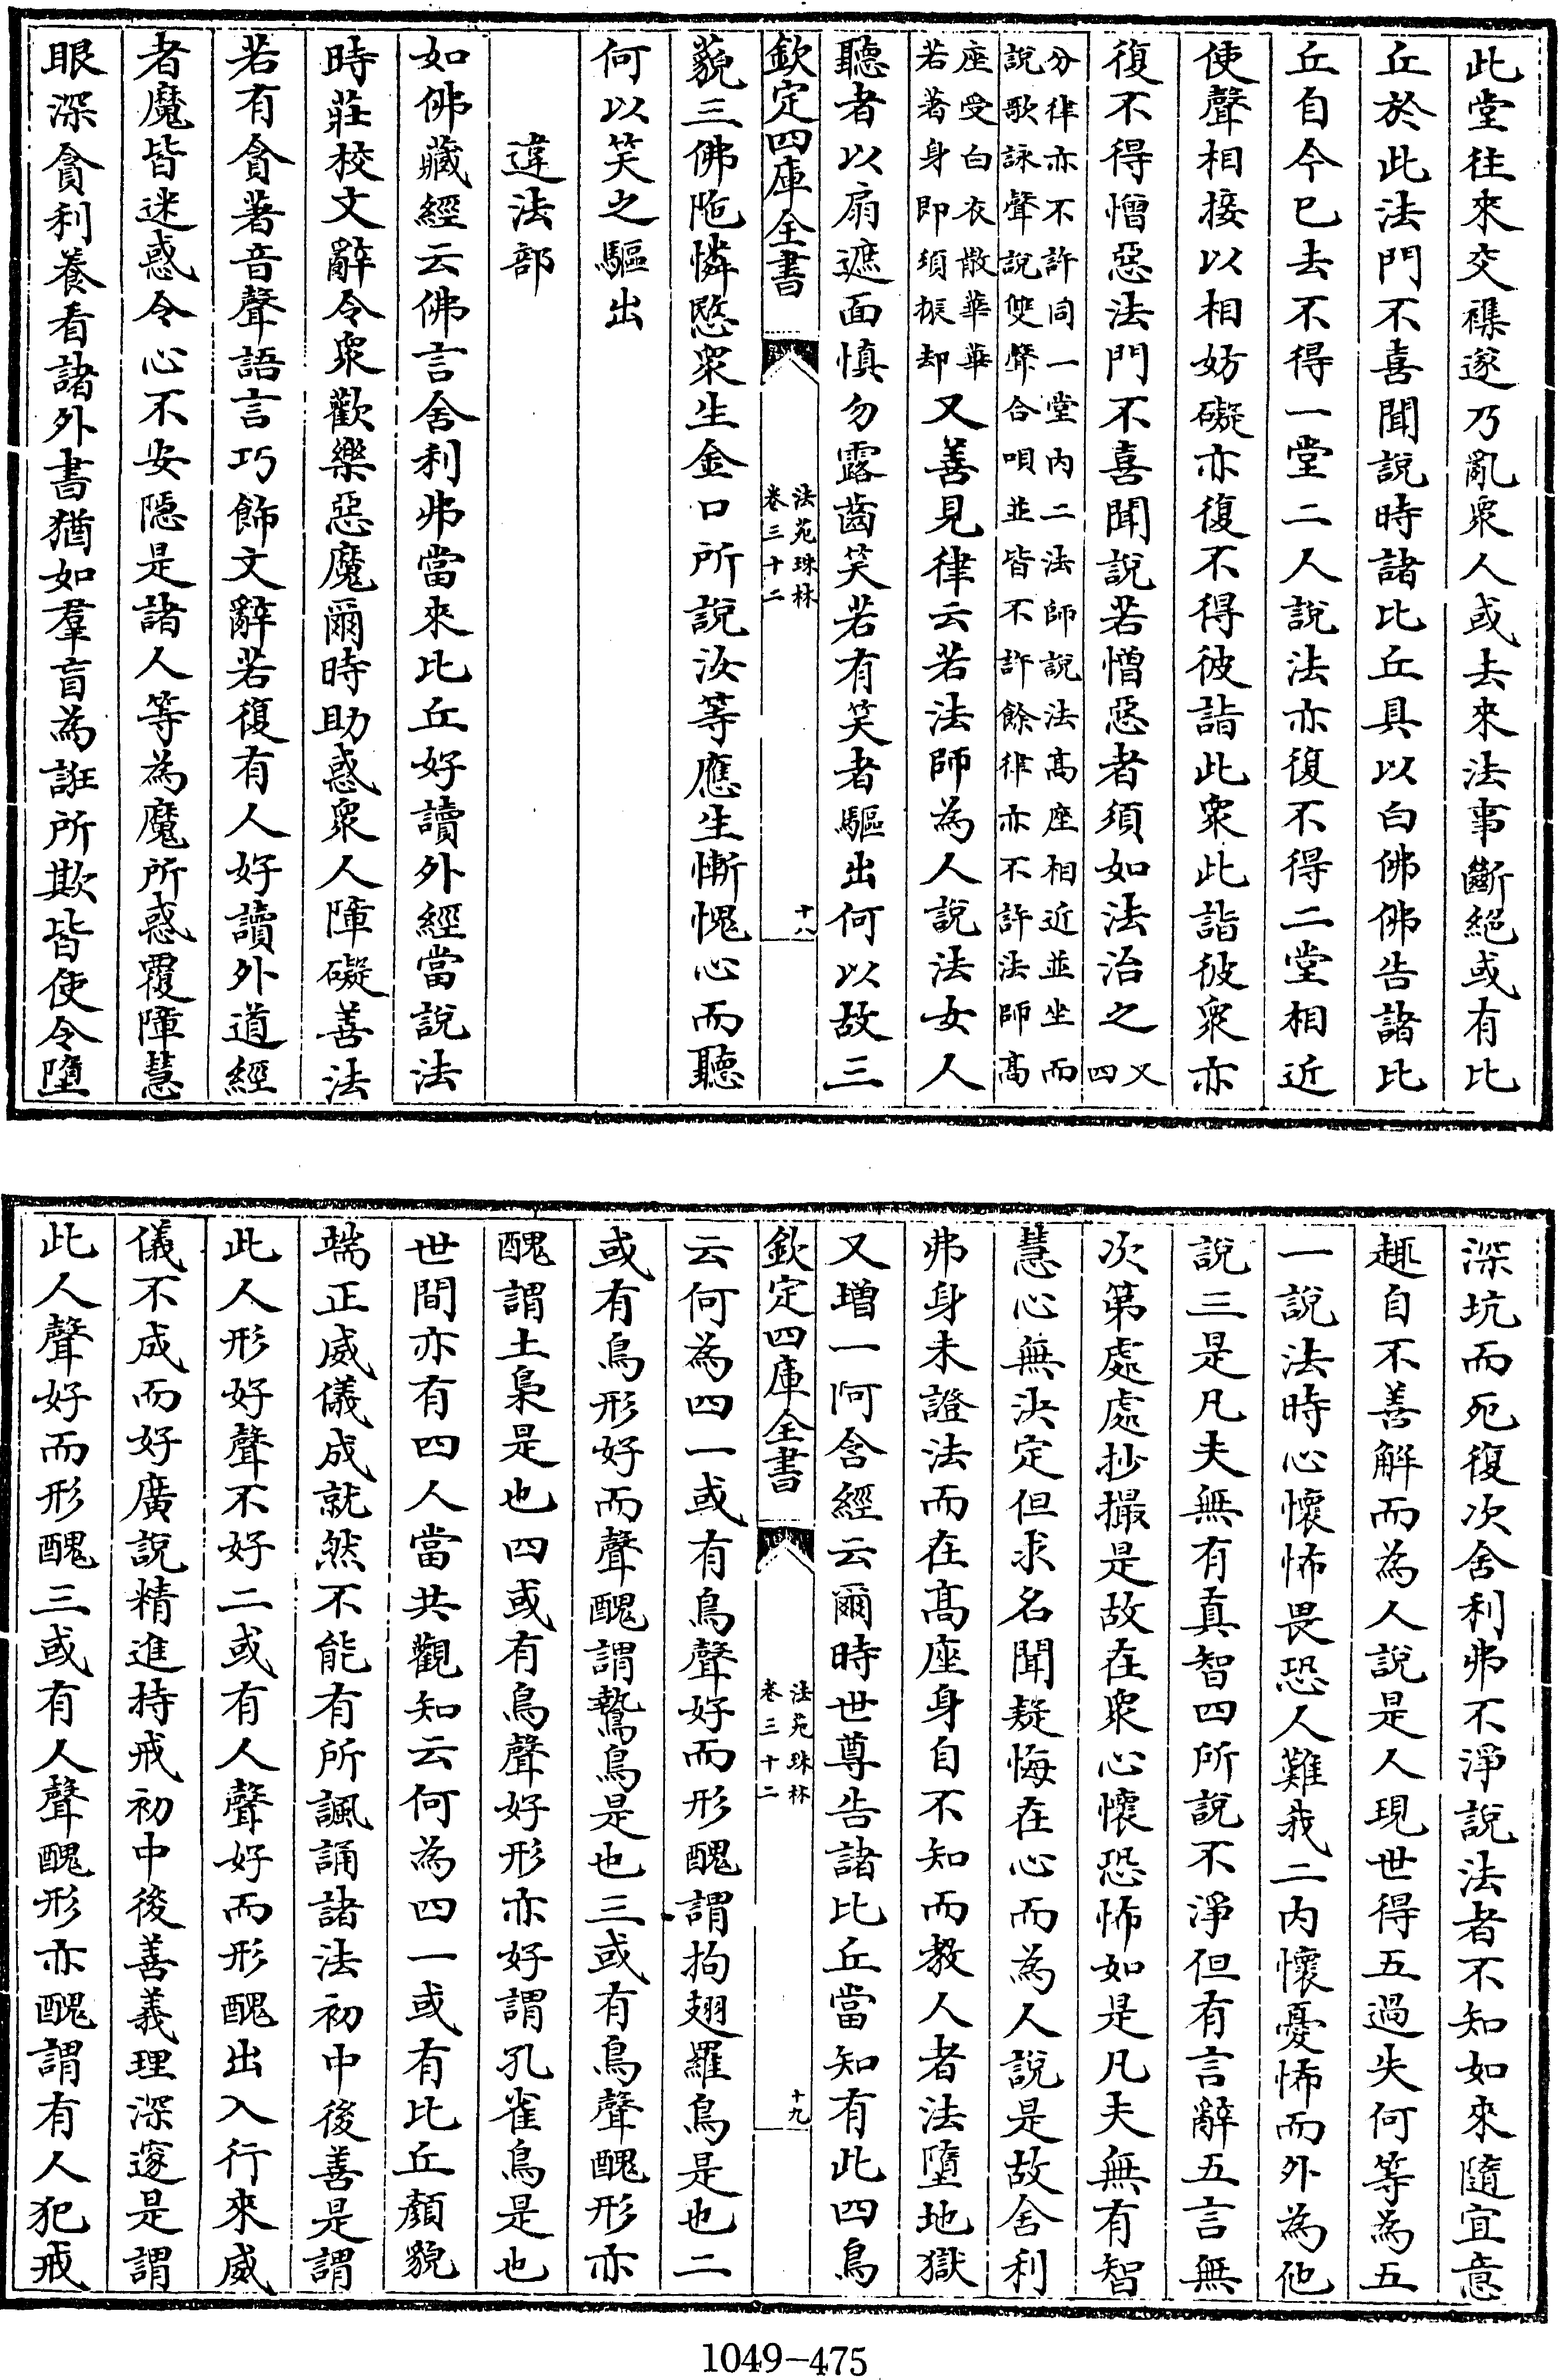 此堂往來交襍遂乃亂衆人或去來法事斷絕或有比
丘於此法門不喜聞說時諸比丘具以白佛佛告諸比
丘自今已去不得一堂二人說法亦復不得二堂相近
使聲相接以相妨礙亦復不得彼詣此衆此詣彼衆亦
復不得憎惡法門不喜聞說若憎惡者須如法治之又
四
分律亦不許同一堂內二法師說法高座相近並坐而
說歌詠聲說雙聲合唄並皆不許餘律亦不許法師高
座受白衣散華華
若著身即須振却又善見律云若法師為人說法女人
聽者以扇遮面慎勿露齒笑若有笑者驅出何以故三
欽定四庫全書
法苑珠林
卷三十二
十八
藐三佛陁憐愍衆生金口所說汝等應生慚愧心而聽
何以笑之驅出
違法部
如佛藏經云佛言舍利弗當來比丘好讀外經當說法
時莊校文辭令衆歡樂惡魔爾時助惑衆人障礙善法
若有貪著音聲語言巧飾文辭若復有人好讀外道經
者魔皆迷惑令心不安隱是諸人等為魔所惑覆障慧
眼深貪利養看諸外書猶如羣盲為誑所欺皆使令墮
深坑而死復次舍利弗不淨說法者不知如來隨宜意
趣自不善解而為人說是人現世得五過失何等為五
一說法時心懷怖畏恐人難我二內懷憂怖而外為他
說三是凡夫無有真智四所說不淨但有言辭五言無
次第處處抄撮是故在衆心懷恐怖如是凡夫無有智
慧心無決定但求名聞疑悔在心而為人說是故舍利
弗身未證法而在高座身自不知而教人者法墮地獄
又增一阿含經云爾時世尊告諸比丘當知有此四鳥
欽定四庫全書
法苑珠林
卷三十二
十九
云何為四一或有鳥聲好而形醜謂拘翅羅鳥是也二
或有鳥形好而聲醜謂鷙鳥是也三或有鳥聲醜形亦
醜謂土梟是也四或有鳥聲好形亦好謂孔雀鳥是也
世間亦有四人當共觀知云何為四一或有比丘顏貌
端正威儀成就然不能有所諷誦諸法初中後善是謂
此人形好聲不好二或有人聲好而形醜出入行來威
儀不成而好廣說精進持戒初中後善義理深邃是謂
此人聲好而形醜三或有人聲醜形亦醜謂有人犯戒
1049-475